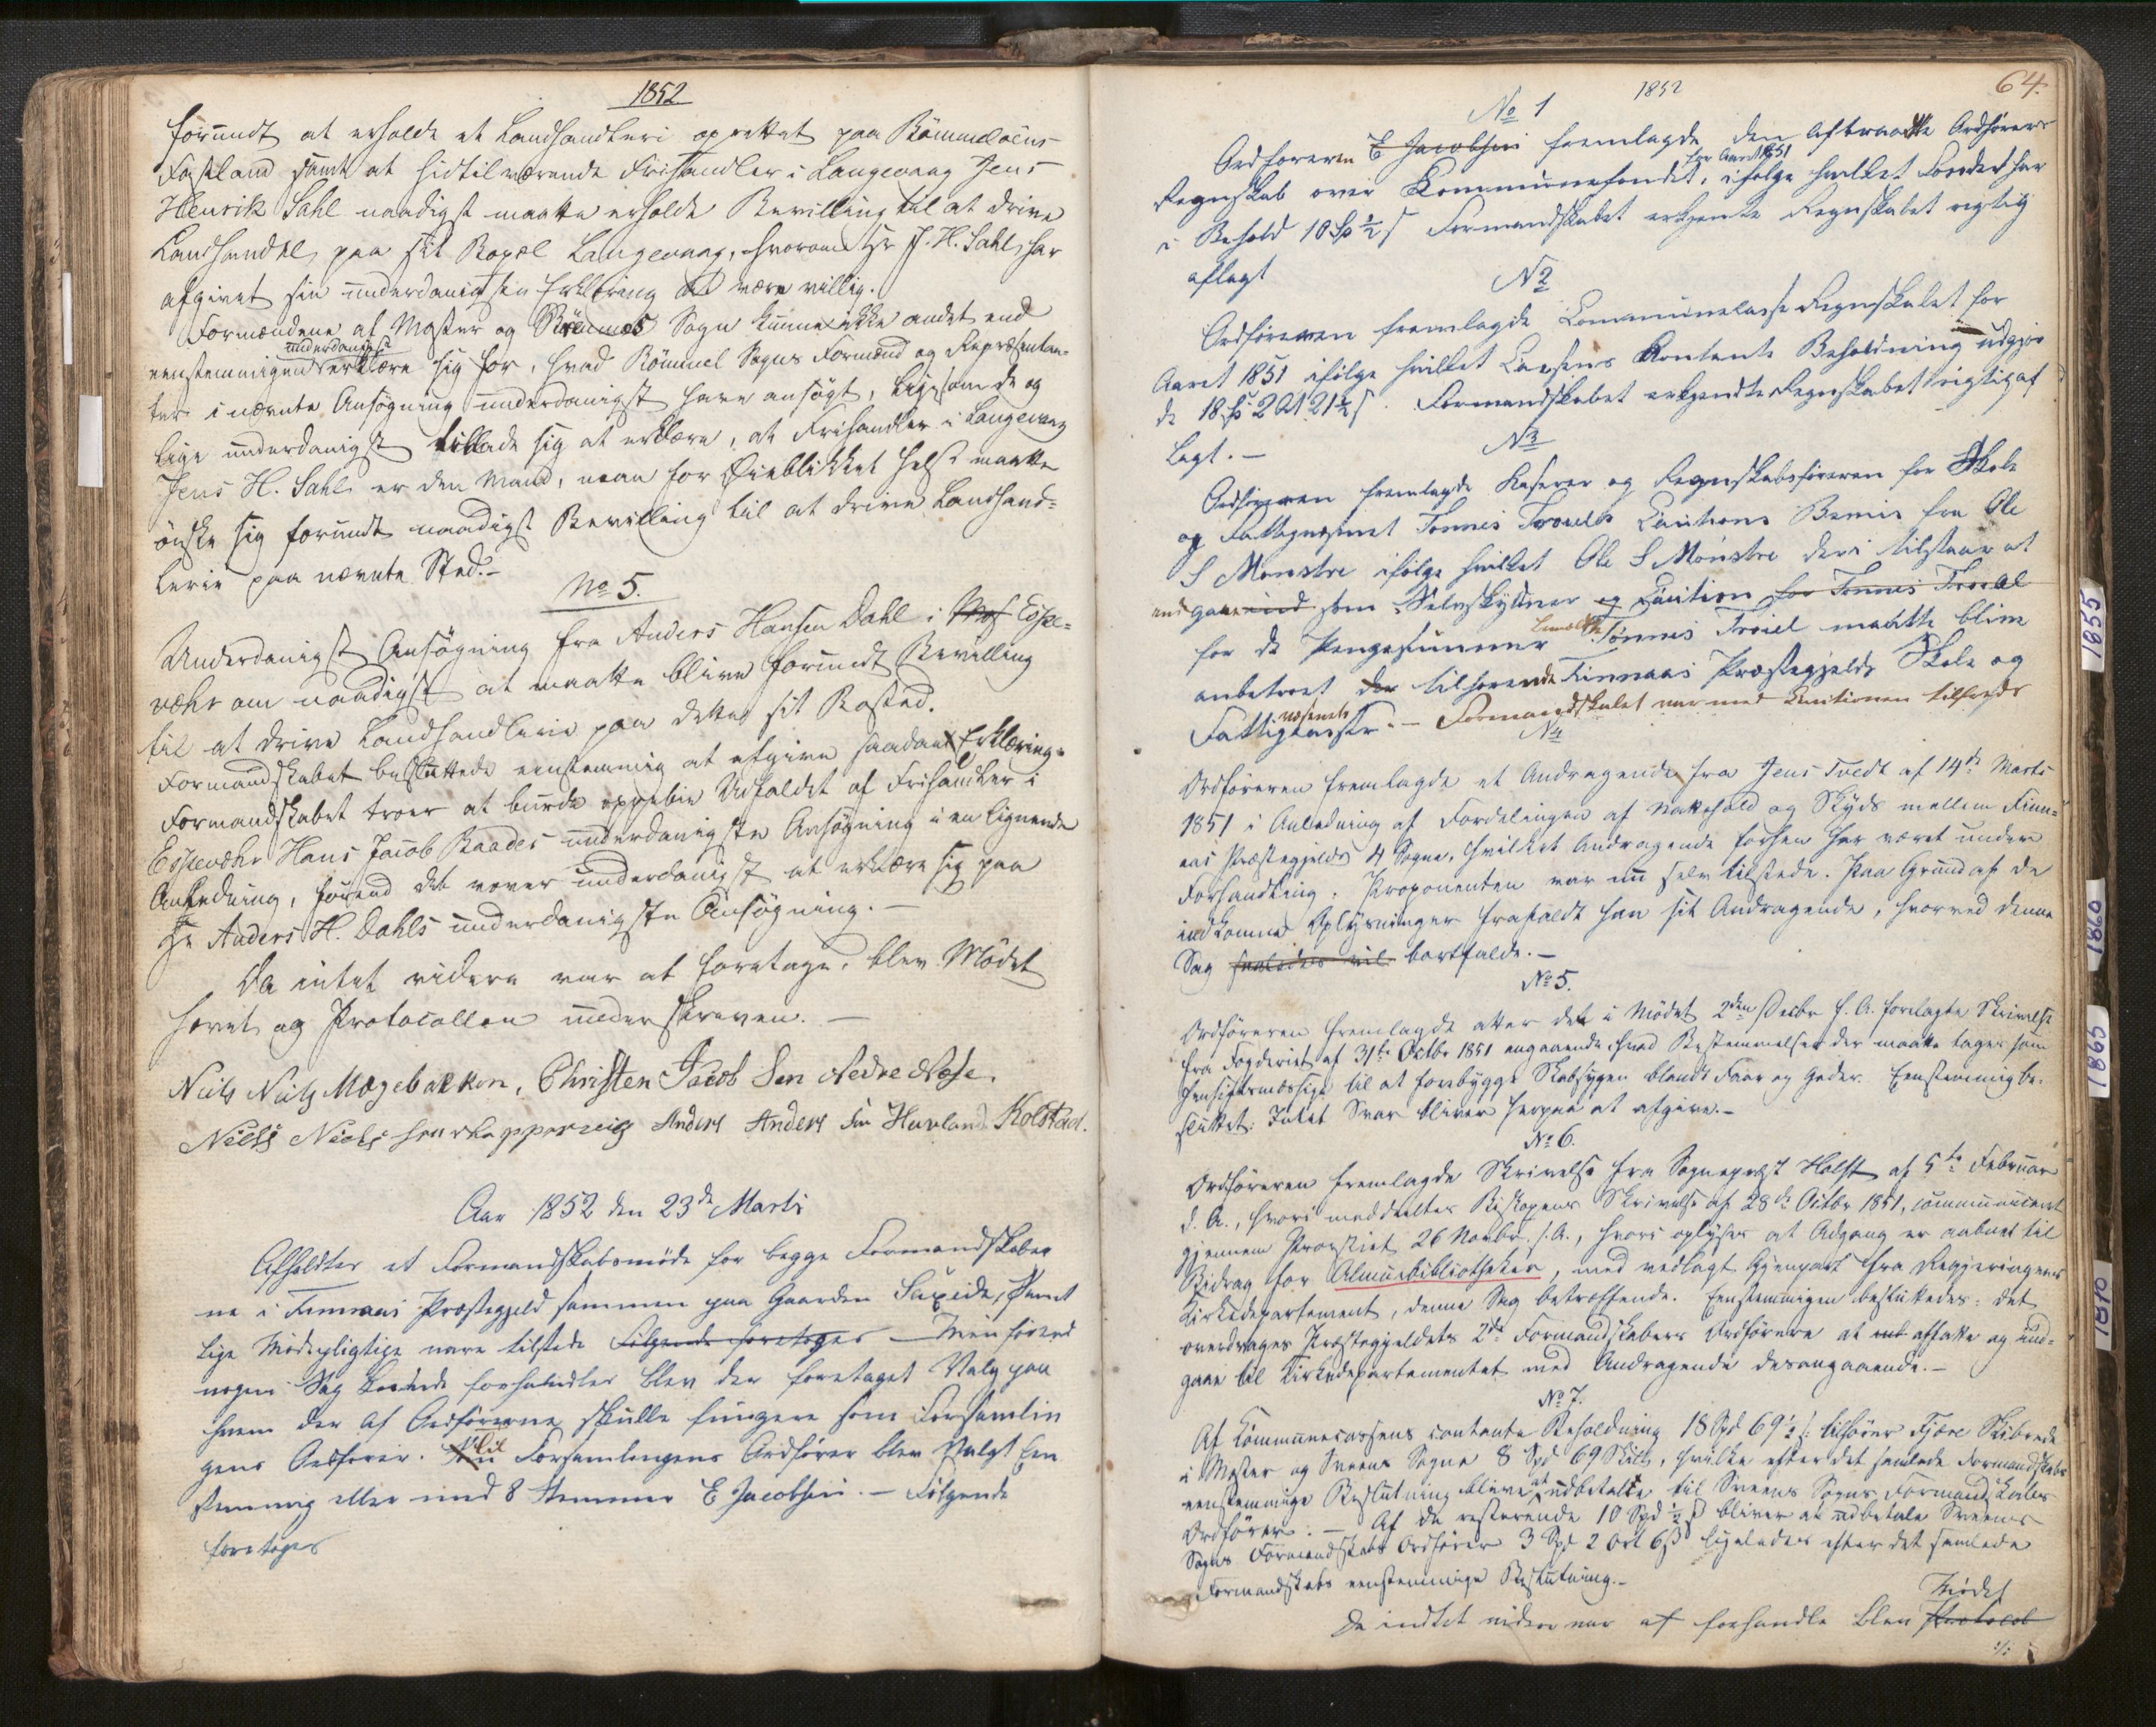 1852
forundt at erholde et Landhandleri oprettet paa Bömmeløens
Fastland samt at hidtilværende Frihandler i Langevaag Jens
Henrik Sahl naadigst maatte erholde Bevilling til at drive
Landhandel paa sit Bopæl Langevaag, hvorom Hr J. H. Sahl har
afgivet sin underdanigsten Erklæring at være villig.
Formændene af Moster og Sogn kunne ikke andet end
eenstemmigen underdanigst erklære sig for, hvad Bömmel Sogns Formænd og Repræsentan-
ter i nævnte Ansögning underdanigst have ansögt, ligesom de og
lige underdanigst tillade sig at erklære, at Frihandler i Langevaag
Jens H. Sahl er den Mand, man for Öieblikket helst maatte
önske sig forundt naadigst Bevilling til at drive Landhand-
lerie paa nævnte Sted.-
No 5.
Underdanigst Ansögning fra Anders Hansen Dahl i Mos Espe-
væhr om naadigst at maatte blive forundt Bevilling
til at drive Landhandlerie paa dette sit Bosted.
Formandskabet besluttede eenstemmig at afgive saadan Erklæring:
Formandskabet troer at burde oppebie Udfaldet af Frihandler i
Espevæhr Hans Jacob Baades underdanigste Ansögning i en lignende
Anledning, förend det vover underdanigst at erklære sig paa
Hr Anders H. Dahls underdanigste Ansögning.-
Da intet videre var at foretage, blev Mödet
hævet og Protocollen underskreven.-
Niels Niels Mægebakken, Christen Jacob Sen Nedre Næse.
Niels Niels sen Anders Anders sen Havland Kolstad.
Aar 1852 den 23de Marts
Afholdtes et Formandskabsmöde for begge Formandskaber
ne i Finnaas Præstegjeld sammen paa Gaarden Saxeide, Samt
lige Mödepligtige vare tilstede Fölgende foretoges - Men förend
nogen Sag forhandles blev der foretaget Valg paa
hvem der af Ordförerne skulle fungere som Forsamlin
gens Ordförer. Til Forsamlingens Ordförer blev valgt Een
stemmig eller med 8 Stemmer E Jacobsen.- Fölgende
foretoges
1852
64.
No 1
Ordföreren E Jacobsen fremlagde den aftraadte Ordförers
Regnskab over Kommunefondet, for Aaret 1851 ifölge hvilket Fondet har
i Behold 10 Sp ½ s Formandskabet erkjente Regnskabet rigtig
aflagt
No 2
Ordföreren fremlagde Communekasse Regnskabet for
Aaret 1851 ifölge hvilket Cassens Kontante Beholdning udgjör
de 18 Sp 2 Ort 21½ s. Formandskabet erkjendte Regnskabet rigtig af
lagt.-
No 3
Ordföreren fremlagde Kaserer og Regnskabsföreren for Skole
og Fattigvæsenet Tönnes Cautions Beviis fra Ole
S Mönstre ifölge hvilket Ole S Mönstre deri tilstaar at
indgaae ind som Selvskyldner og Caution for Tönnes
for de Pengesummer Tönnes maatte blive
anbetroet der tilhörende Finnaas Præstegjelds Skole og
Fattigvæsenets kasse.- Formandskabet var med Cautionen tilfreds
No 4
Ordföreren fremlagde et Andragende fra Jens Tvedt af 14de Marts
1851 i Anledning af Fordelingen af Natehold og Skyds mellem Finn-
aas Præstegjelds 4 Sogne, hvilket Andragende forhen har været under
Forhandling. Proponenten var nu selv tilstede. Paa Grund af de
indkomne Oplysninger frafaldt han sit Andragende, hvorved denne
Sag saaledes vil bortfalde.-
No 5.
Ordföreren fremlagde atter det i Mödet 2den Decbr f. A. forelagte Skrivelse
fra Fogderiet af 31te Octbr 1851 angaaende hvad Bestemmelser der maatte tages som
hensigtsmæssige til at forebygge Skabsygen blandt Faar og Geder. Eenstemmig be-
sluttet: Intet Svar bliver herpaa at afgive.-
No 6.
Ordföreren fremlagde Skrivelse fra Sognepræst Holst af 5te Februar
d. A., hvori meddeeltes Biskopens Skrivelse af 28de Octbr 1851, communiceret
gjennem Provstiet 26 Novbr. s. A., hvori oplyses at Adgang er aabnet til
Bidrag for Almuebibliotheker, med vedlagt Gjenpart fra Regjeringens
Kirkedepartement, denne Sag betræffende. Eenstemmigen besluttedes: det
overdrages Præstegjeldets 2de Formandskabers Ordförere at affatte og ind-
gaae til Kirkedepartementet med Andragende desangaaende.-
No 7.
Af Kommunecassens contante Beholdning 18 Spd 69½ s: tilhörer Fjære Skibrede
i Moster og Sveens Sogne 8 Spd 69 Skill, hvilke efter det samlede Formandskabs
eenstemmige Beslutning bliver at udbetale til Sveens Sogns Formandskabs
Ordförer.- Af de resterende 10 Spd ½ s bliver at udbetale Sveens
Sogns Formandskabs Ordförer 3 Spd 2 Ort 6 s ligeledes efter det samlede
Formandskabs eenstemmige Beslutning.-
Da indtet videre var at forhandle blev Protocol Mödet
1855
1860
1865
1870